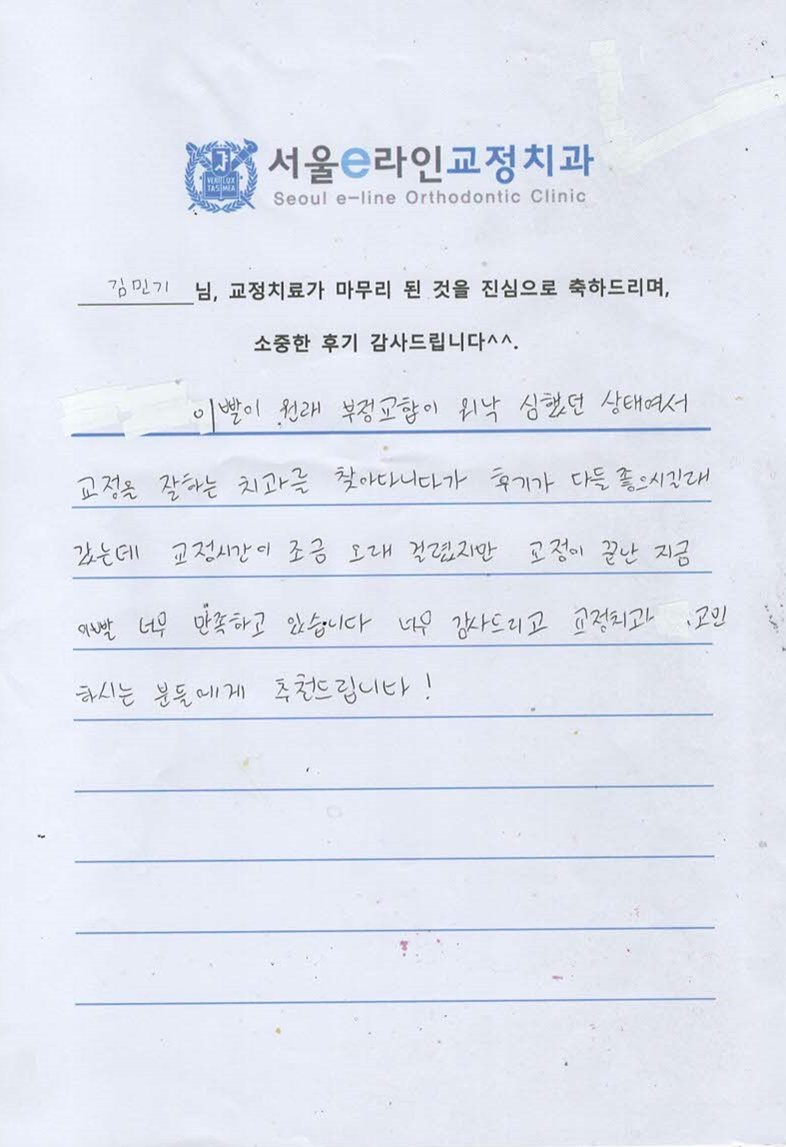 서울e라인교정치과
Seoul e-line Orthodontic Clinic
VERI LUX TAS MEA
김민기 님, 교정치료가 마무리 된 것을 진심으로 축하드리며,
소중한 후기 감사드립니다^^.
이빨이 원래 부정교합이 워낙 심했던 상태여서
교정을 잘하는 치과를 찾아다니다가 후기가 다들 좋으시길래
갔는데 교정시간이 조금 오래 걸렸지만 교정이 끝난 지금
이빨 너무 만족하고 있습니다 너무 감사드리고 교정치과 고민
하시는 분들에게 추천드립니다!